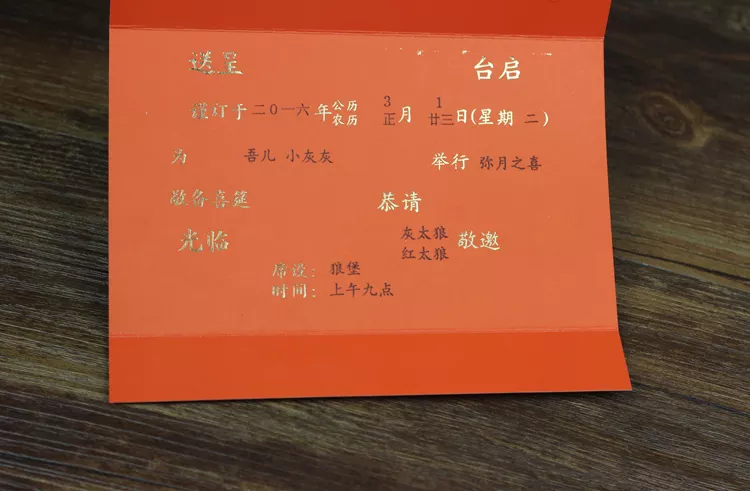 送呈 台启
谨订于 二〇一六 年 公历 3 月 1 日(星期 二)
农历 正 廿三
为 吾儿 小灰灰 举行 弥月之喜
敬备喜筵 恭请
光临 灰太狼 敬邀
红太狼
席设：狼堡
时间：上午九点